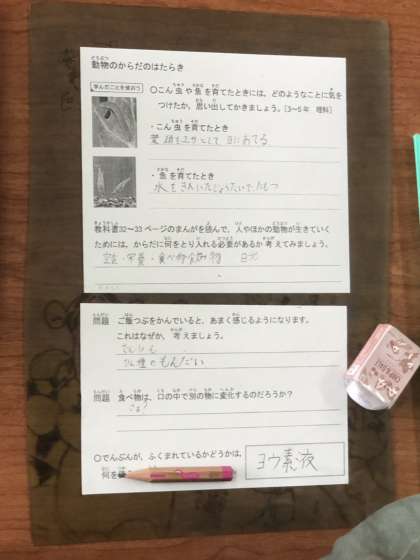 動物のからだのはたらき
学んだことを使おう
○こん虫や魚を育てたときには、どのようなことに気を
つけたか、思い出してかきましょう。[3〜5年 理科]
・こん虫を育てたとき
日におてる
・魚を育てたとき
水をきれいなじょうたいでたもつ
教科書32〜33ページのまんがを読んで、人やほかの動物が生きていく
ためには、からだに何をとり入れる必要があるか考えてみましょう。
空気・栄養・食べ物
問題 ご飯つぶをかんでいると、あまく感じるようになります。
これはなぜか、考えましょう。
のもんだい
問題 食べ物は、口の中で別の物に変化するのだろうか?
○でんぷんが、ふくまれているかどうかは、
何を
ヨウ素液